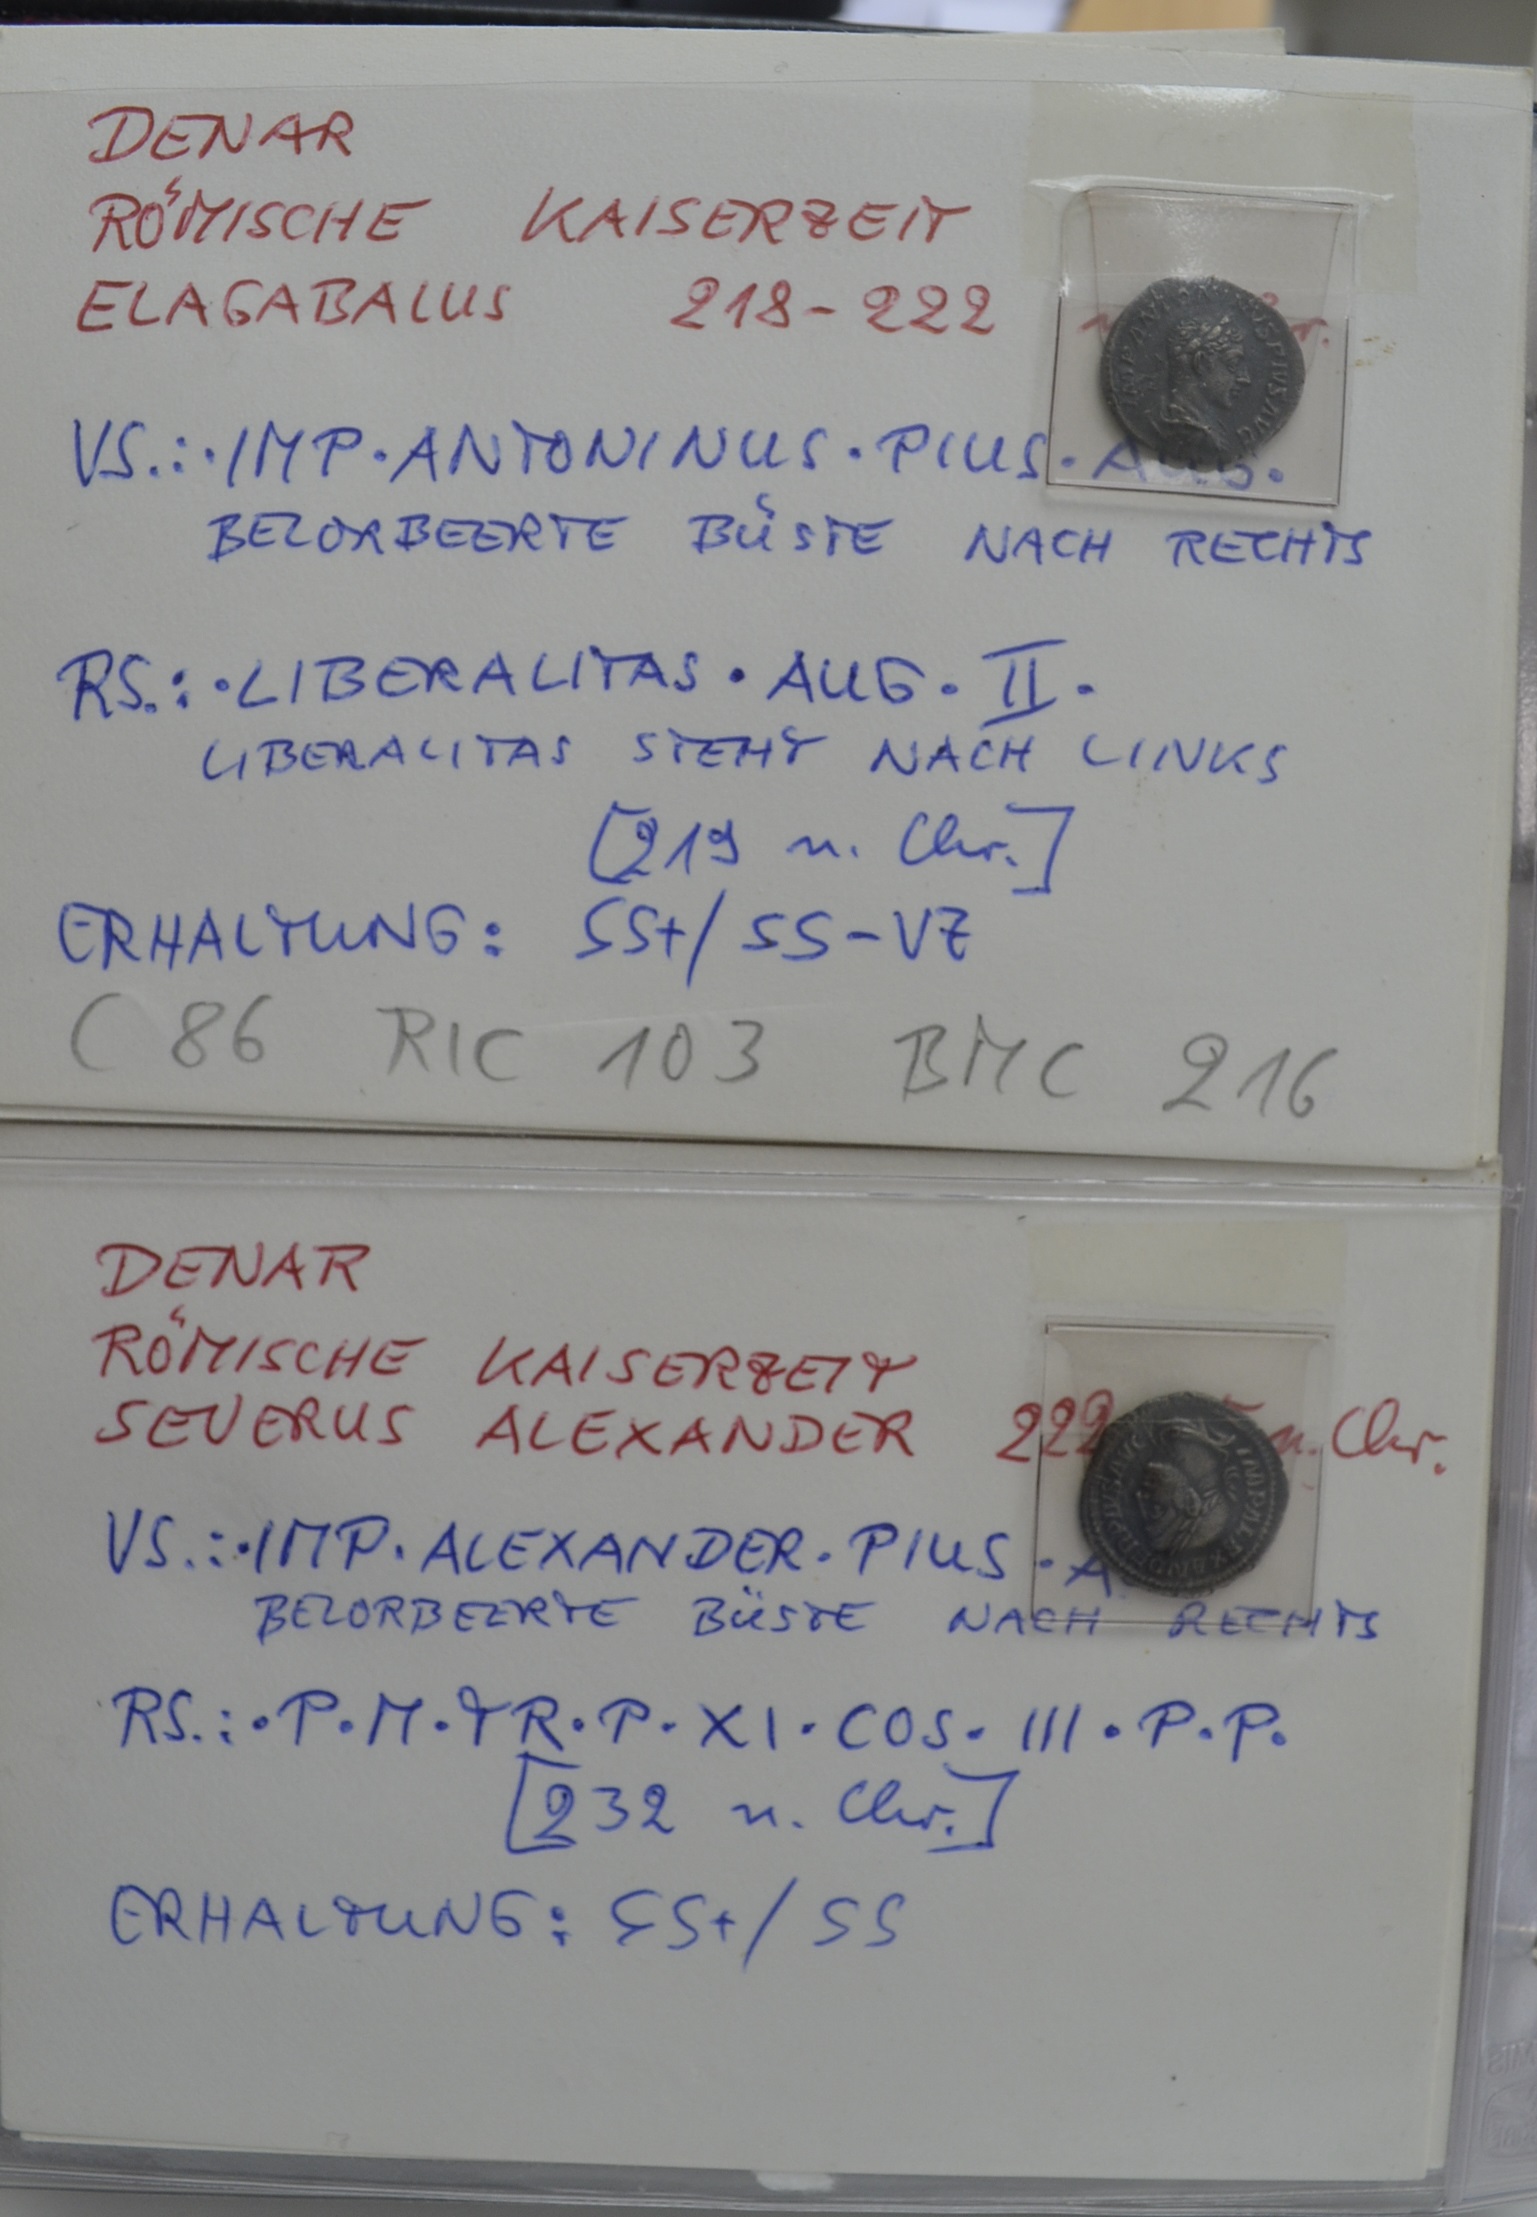 DENAR
RÖMISCHE KAISERZEIT
ELAGABALUS 218-222
VS.: ·IMP·ANTONINUS·PIUS·AUG.
BELORBEERTE BÜSTE NACH RECHTS
RS.: ·LIBERALITAS·AUG·II·
LIBERALITAS STEHT NACH LINKS
[219 n. Chr.]
ERHALTUNG: SS+/SS-VZ
C 86 RIC 103 BMC 216
DENAR
RÖMISCHE KAISERZEIT
SEVERUS ALEXANDER 222 n. Chr.
VS.: ·IMP·ALEXANDER·PIUS·
BELORBEERTE BÜSTE NACH RECHTS
RS.: ·P·M·TR·P·XI·COS·III·P·P·
[232 n. Chr.]
ERHALTUNG: SS+/SS